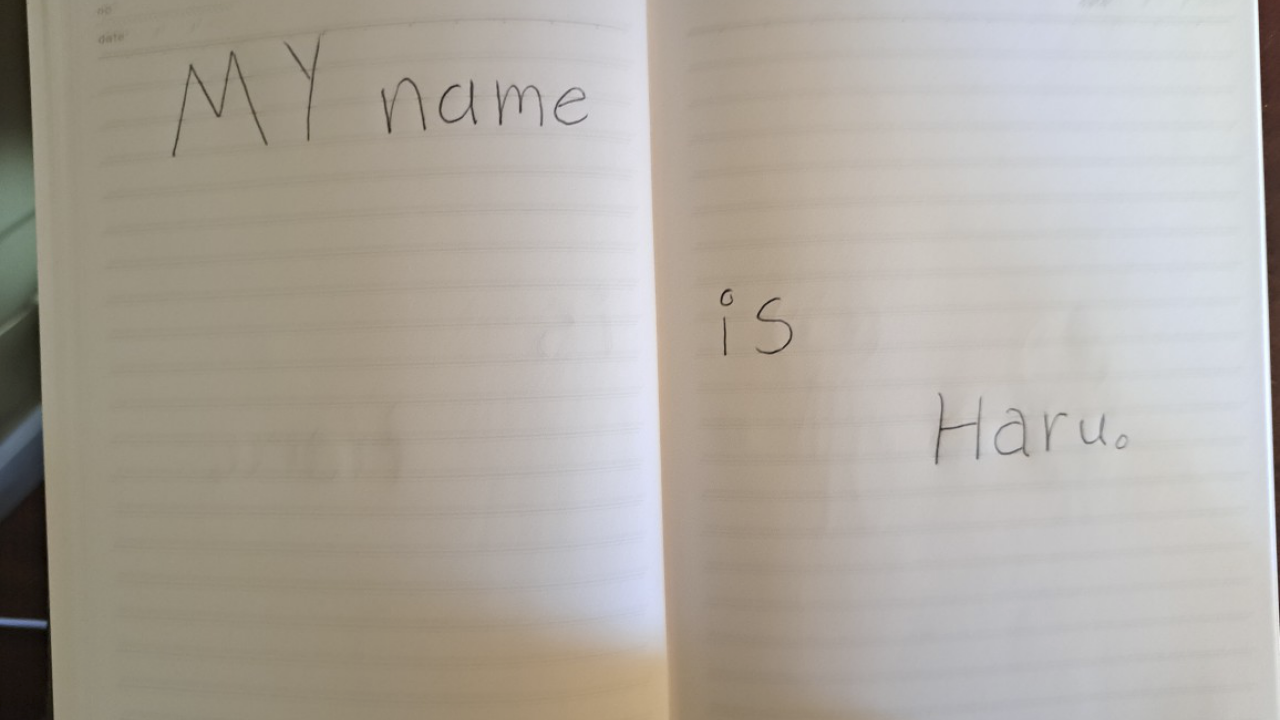 no
date
MY name
is
Haru。